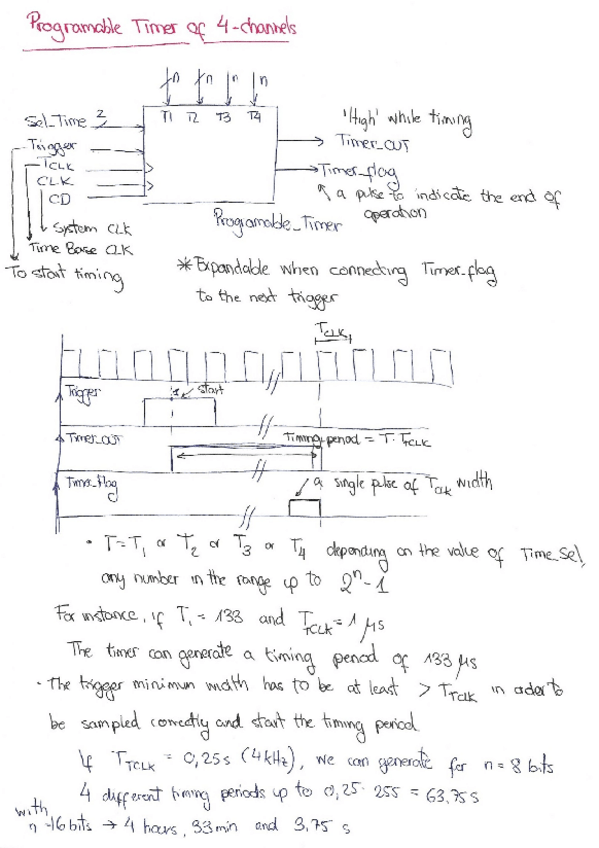 Programable Timer of 4-channels
n n n n
Sel_Time 2 T1 T2 T3 T4 'High' while timing
Trigger Timer_OUT
TCLK Timer_flag
CLK a pulse to indicate the end of
CD operation
System CLK Programable_Timer
Time Base CLK
To start timing
* Expandable when connecting Timer_flag
to the next trigger
TCLK
Trigger 1 start
Timer_out Timing period = T · TTCLK
Timer_flag a single pulse of Tclk width
· T = T1 or T2 or T3 or T4 depending on the value of Time_Sel,
any number in the range up to 2^n - 1
For instance, if T1 = 133 and TTCLK = 1 µs
The timer can generate a timing period of 133 µs
· The trigger minimun width has to be at least > TTclk in order to
be sampled correctly and start the timing period
If TTCLK = 0,25s (4kHz), we can generate for n = 8 bits
4 different timing periods up to 0,25 · 255 = 63,75 s
with
n = 16 bits → 4 hours, 33min and 3,75 s